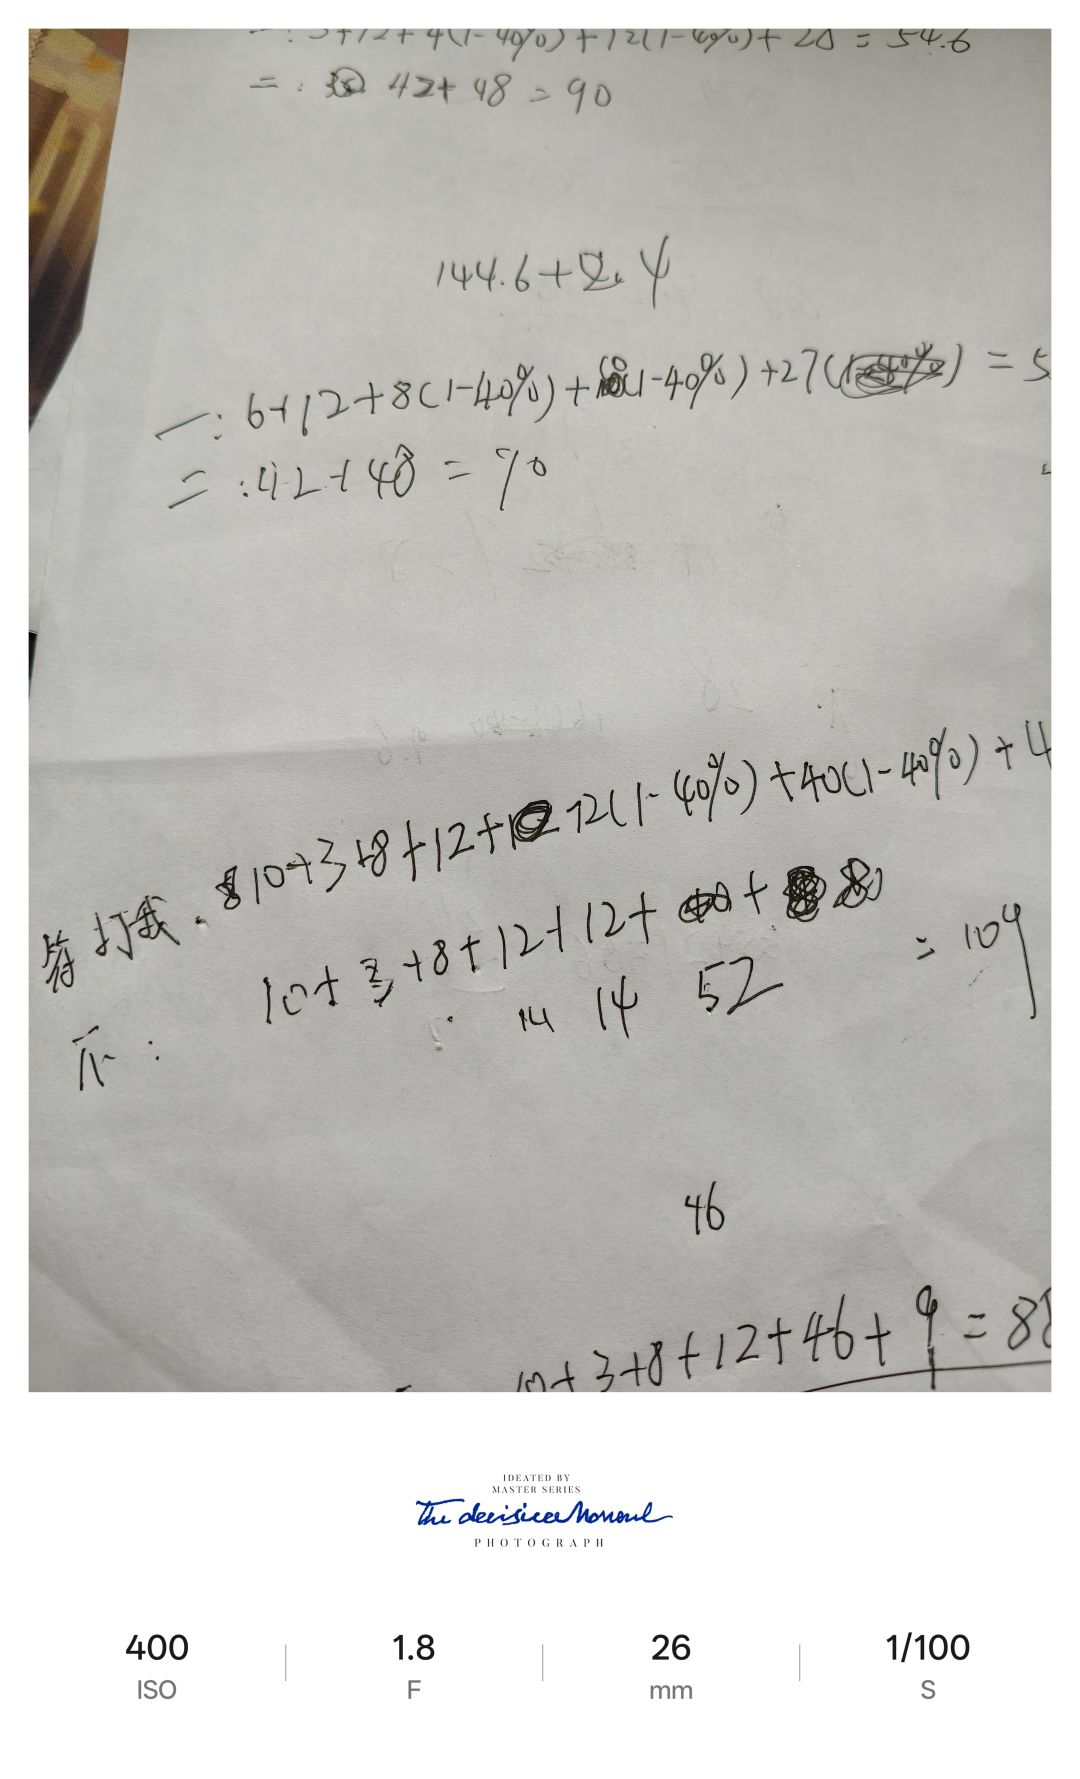 一: 5+12+4(1-40%)+12(1-40%)+28=54.6
二: 42+48=90
144.6+2.4
一: 6+12+8(1-40%)+(1-40%)+27()=5
二: 42+48=90
打我. 10+3+8+12+12(1-40%)+40(1-40%)+4
10+3+8+12+12+ + 
14 14 52 =104
46
10+3+8+12+46+9=88
IDEATED BY
MASTER SERIES
The decisive Moment
PHOTOGRAPH
400 1.8 26 1/100
ISO F mm S